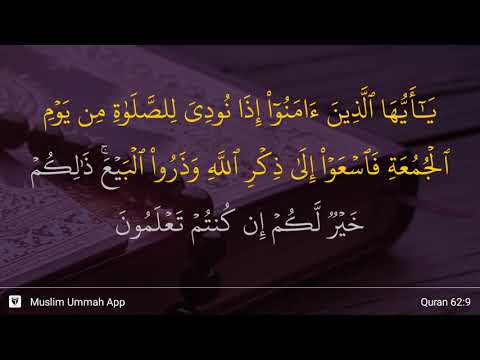 يَـٰٓأَيُّهَا ٱلَّذِينَ ءَامَنُوٓا۟ إِذَا نُودِىَ لِلصَّلَوٰةِ مِن يَوْمِ
ٱلْجُمُعَةِ فَٱسْعَوْا۟ إِلَىٰ ذِكْرِ ٱللَّهِ وَذَرُوا۟ ٱلْبَيْعَ ۚ ذَٰلِكُمْ
خَيْرٌ لَّكُمْ إِن كُنتُمْ تَعْلَمُونَ
Muslim Ummah App
Quran 62:9